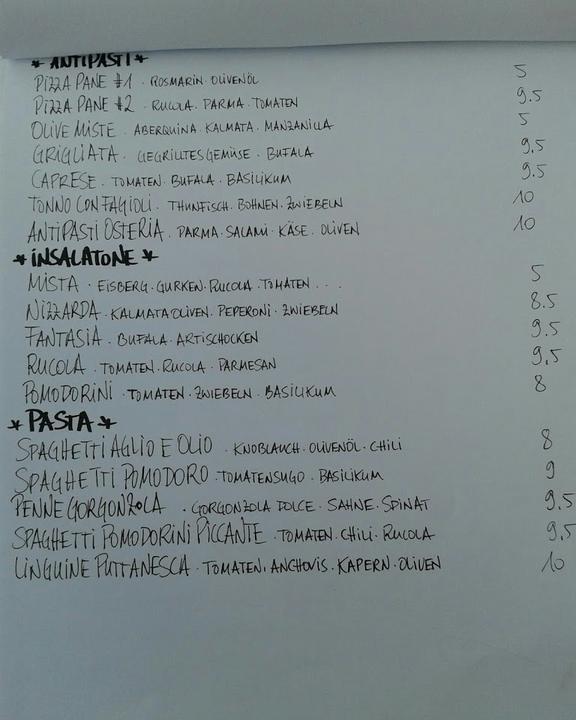 * ANTIPASTI *
PIZZA PANE #1 . ROSMARIN . OLIVENÖL 5
PIZZA PANE #2 . RUCOLA . PARMA . TOMATEN 9.5
OLIVE MISTE . ABERQUINA . KALMATA . MANZANILLA 5
GRIGLIATA . GEGRILLTES GEMÜSE . BUFALA 9.5
CAPRESE . TOMATEN . BUFALA . BASILIKUM 9.5
TONNO CON FAGIOLI . THUNFISCH . BOHNEN . ZWIEBELN 10
ANTIPASTI OSTERIA . PARMA . SALAMI . KÄSE . OLIVEN 10
* INSALATONE *
MISTA . EISBERG . GURKEN . RUCOLA . TOMATEN ... 5
NIZZARDA . KALMATA OLIVEN . PEPERONI . ZWIEBELN 8.5
FANTASIA . BUFALA . ARTISCHOCKEN 9.5
RUCOLA . TOMATEN . RUCOLA . PARMESAN 9.5
POMODORINI . TOMATEN . ZWIEBELN . BASILIKUM 8
* PASTA *
SPAGHETTI AGLIO E OLIO . KNOBLAUCH . OLIVENÖL . CHILI 8
SPAGHETTI POMODORO . TOMATENSUGO . BASILIKUM 9
PENNE GORGONZOLA . GORGONZOLA DOLCE . SAHNE . SPINAT 9.5
SPAGHETTI POMODORINI PICCANTE . TOMATEN . CHILI . RUCOLA 9.5
LINGUINE PUTTANESCA . TOMATEN . ANCHOVIS . KAPERN . OLIVEN 10